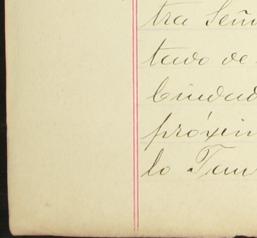 tra Seño
tado de
Ciudad
próxim
lo Tam